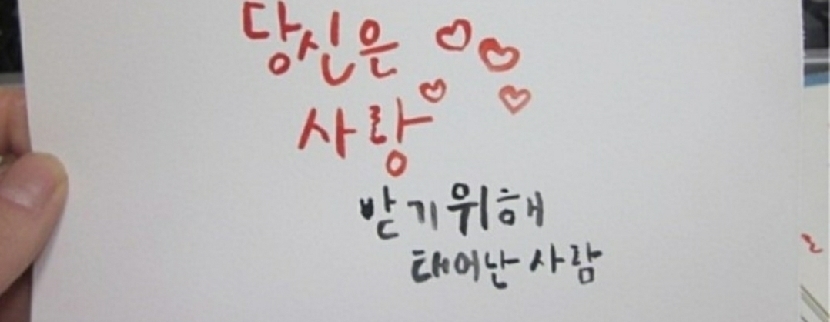 당신은
사랑
받기위해
태어난 사람